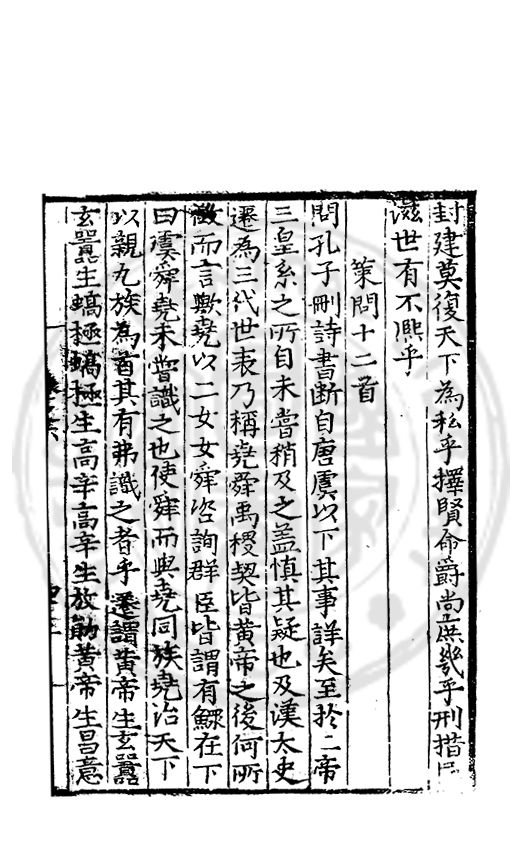 封建莫復天下為私乎擇賢命爵尚庶幾乎刑措民
滋世有不熈乎
策問十二首
問孔子刪詩書断自唐虞以下其事詳矣至於二帝
三皇系之所自未嘗稍及之盖慎其疑也及漢太史
遷為三代世表乃稱堯舜禹稷契皆黄帝之後何所
徴而言歟堯以二女女舜咨詢群臣皆謂有鰥在下
曰虞舜堯未嘗識之也使舜而與堯同族堯治天下
以親九族為首其有弗識之者乎遷謂黄帝生玄囂
玄囂生蟜極蟜極生高辛高辛生放勛黄帝生昌意